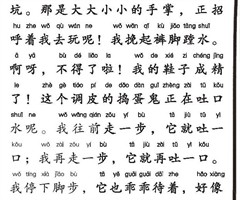 玩。那是大大小小的手掌，正招
hū zhe wǒ qù wán ne wǒ wǎn qǐ kù jiǎo tāng shuǐ
呼着我去玩呢！我挽起裤脚蹚水。
a ya bù dé liǎo la wǒ de xié zi chéng jīng
啊呀，不得了啦！我的鞋子成精
le zhè ge tiáo pí de dǎo dàn guǐ zhèng zài tǔ kǒu
了！这个调皮的捣蛋鬼正在吐口
shuǐ ne wǒ wǎng qián zǒu yí bù tā jiù tǔ yì
水呢。我往前走一步，它就吐一
kǒu wǒ zài zǒu yí bù tā jiù zài tǔ yì kǒu
口；我再走一步，它就再吐一口。
wǒ tíng xià jiǎo bù tā yě guāi guāi dāi zhe hǎo xiàng
我停下脚步，它也乖乖待着，好像